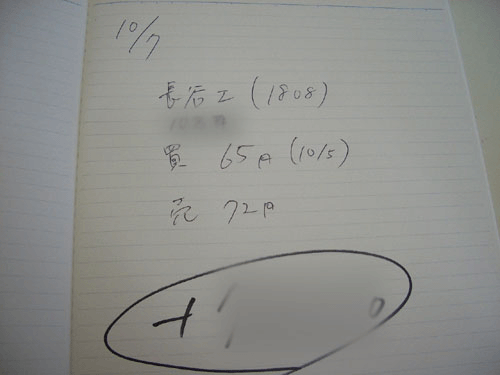 10/7
長谷工(1808)
買 65円(10/5)
売 72円
+